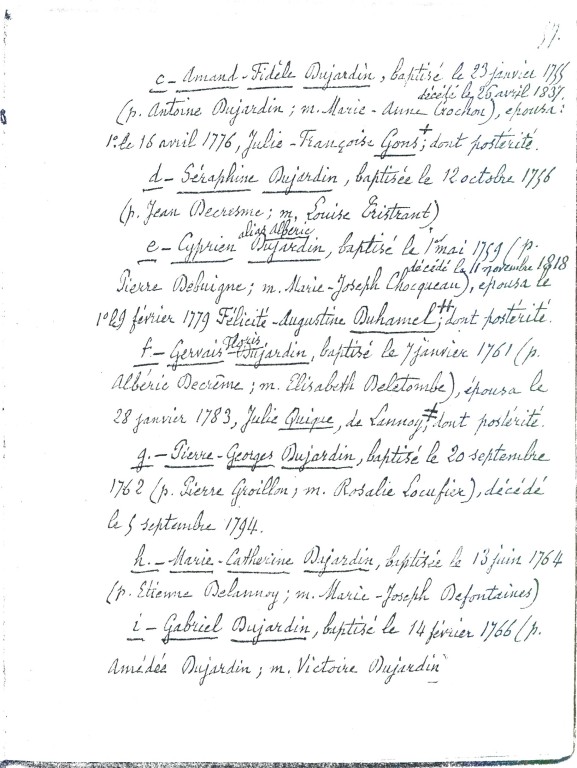 57.
c - Amand-Fidèle Dujardin, baptisé le 23 janvier 1755
décédé le 26 avril 1837.
(p. Antoine Dujardin ; m. Marie-Anne Crochon), épousa :
1° le 16 avril 1776, Julie-Françoise Gons+; dont postérité.
d - Séraphine Dujardin, baptisée le 12 octobre 1756
(p. Jean Decresme ; m. Louise Tristrant)
alias Albéric
e - Cyprien Dujardin, baptisé le 1er mai 1759 (p.
décédé le 11 novembre 1818
Pierre Debuigne ; m. Marie-Joseph Chocqueau), épousa le
1° le 9 février 1779 Félicité-Augustine Duhamel ++; dont postérité.
Floris
f - Gervais - Dujardin, baptisé le 7 janvier 1761 (p.
Albéric Decrême ; m. Elisabeth Deletombe), épousa le
28 janvier 1783, Julie Quique, de Lannoy ‡; dont postérité.
g. - Pierre-Georges Dujardin, baptisé le 20 septembre
1762 (p. Pierre Groillon ; m. Rosalie Locufier), décédé
le 5 septembre 1794.
h. - Marie-Catherine Dujardin, baptisée le 13 juin 1764
(p. Etienne Delannoy ; m. Marie-Joseph Defontaines)
i - Gabriel Dujardin, baptisé le 14 février 1766 (p.
Amédée Dujardin ; m. Victoire Dujardin